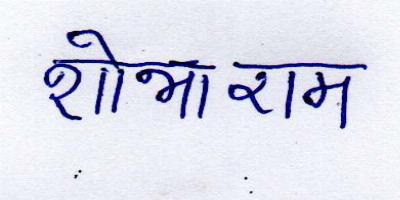 शोभा राम